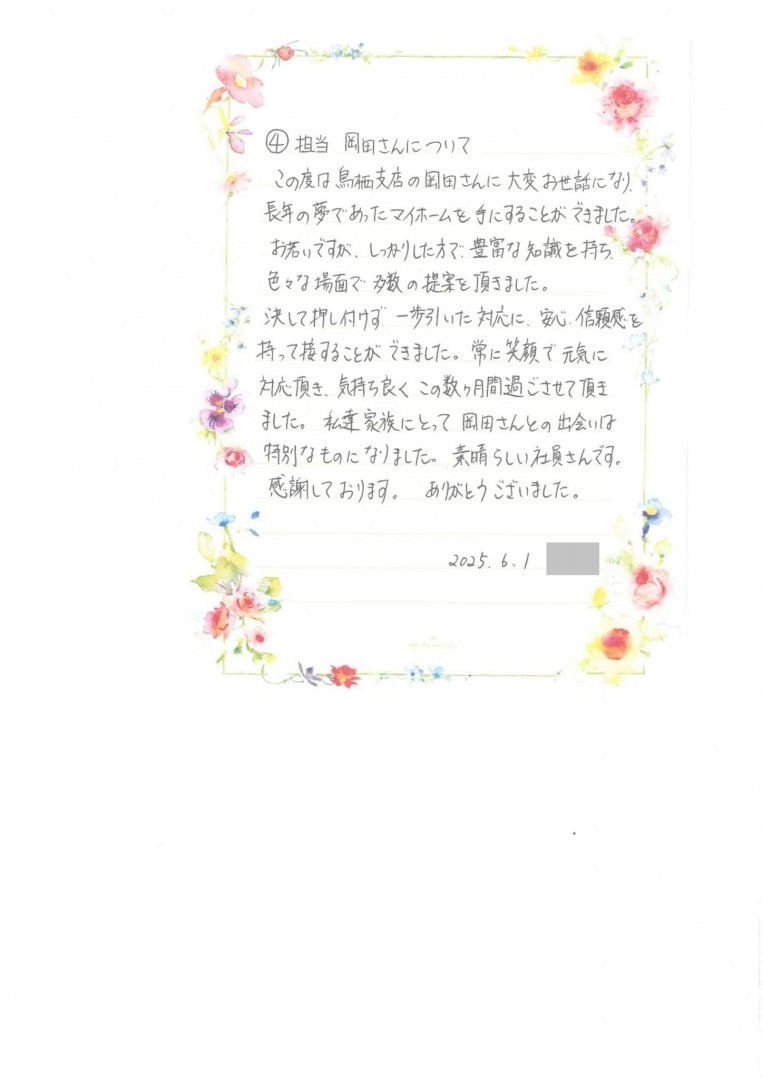 ④担当 岡田さんについて
この度は鳥栖支店の岡田さんに大変お世話になり、
長年の夢であったマイホームを手にすることができました。
お若いですが、しっかりした方で、豊富な知識を持ち、
色々な場面で多数の提案を頂きました。
決して押し付けず 一歩引いた対応に、安心、信頼感を
持って接することができました。常に笑顔で元気に
対応頂き、気持ち良く この数ヶ月間過ごさせて頂き
ました。私達家族にとって 岡田さんとの出会いは
特別なものになりました。素晴らしい社員さんです。
感謝しております。 ありがとうございました。
2025.6.1